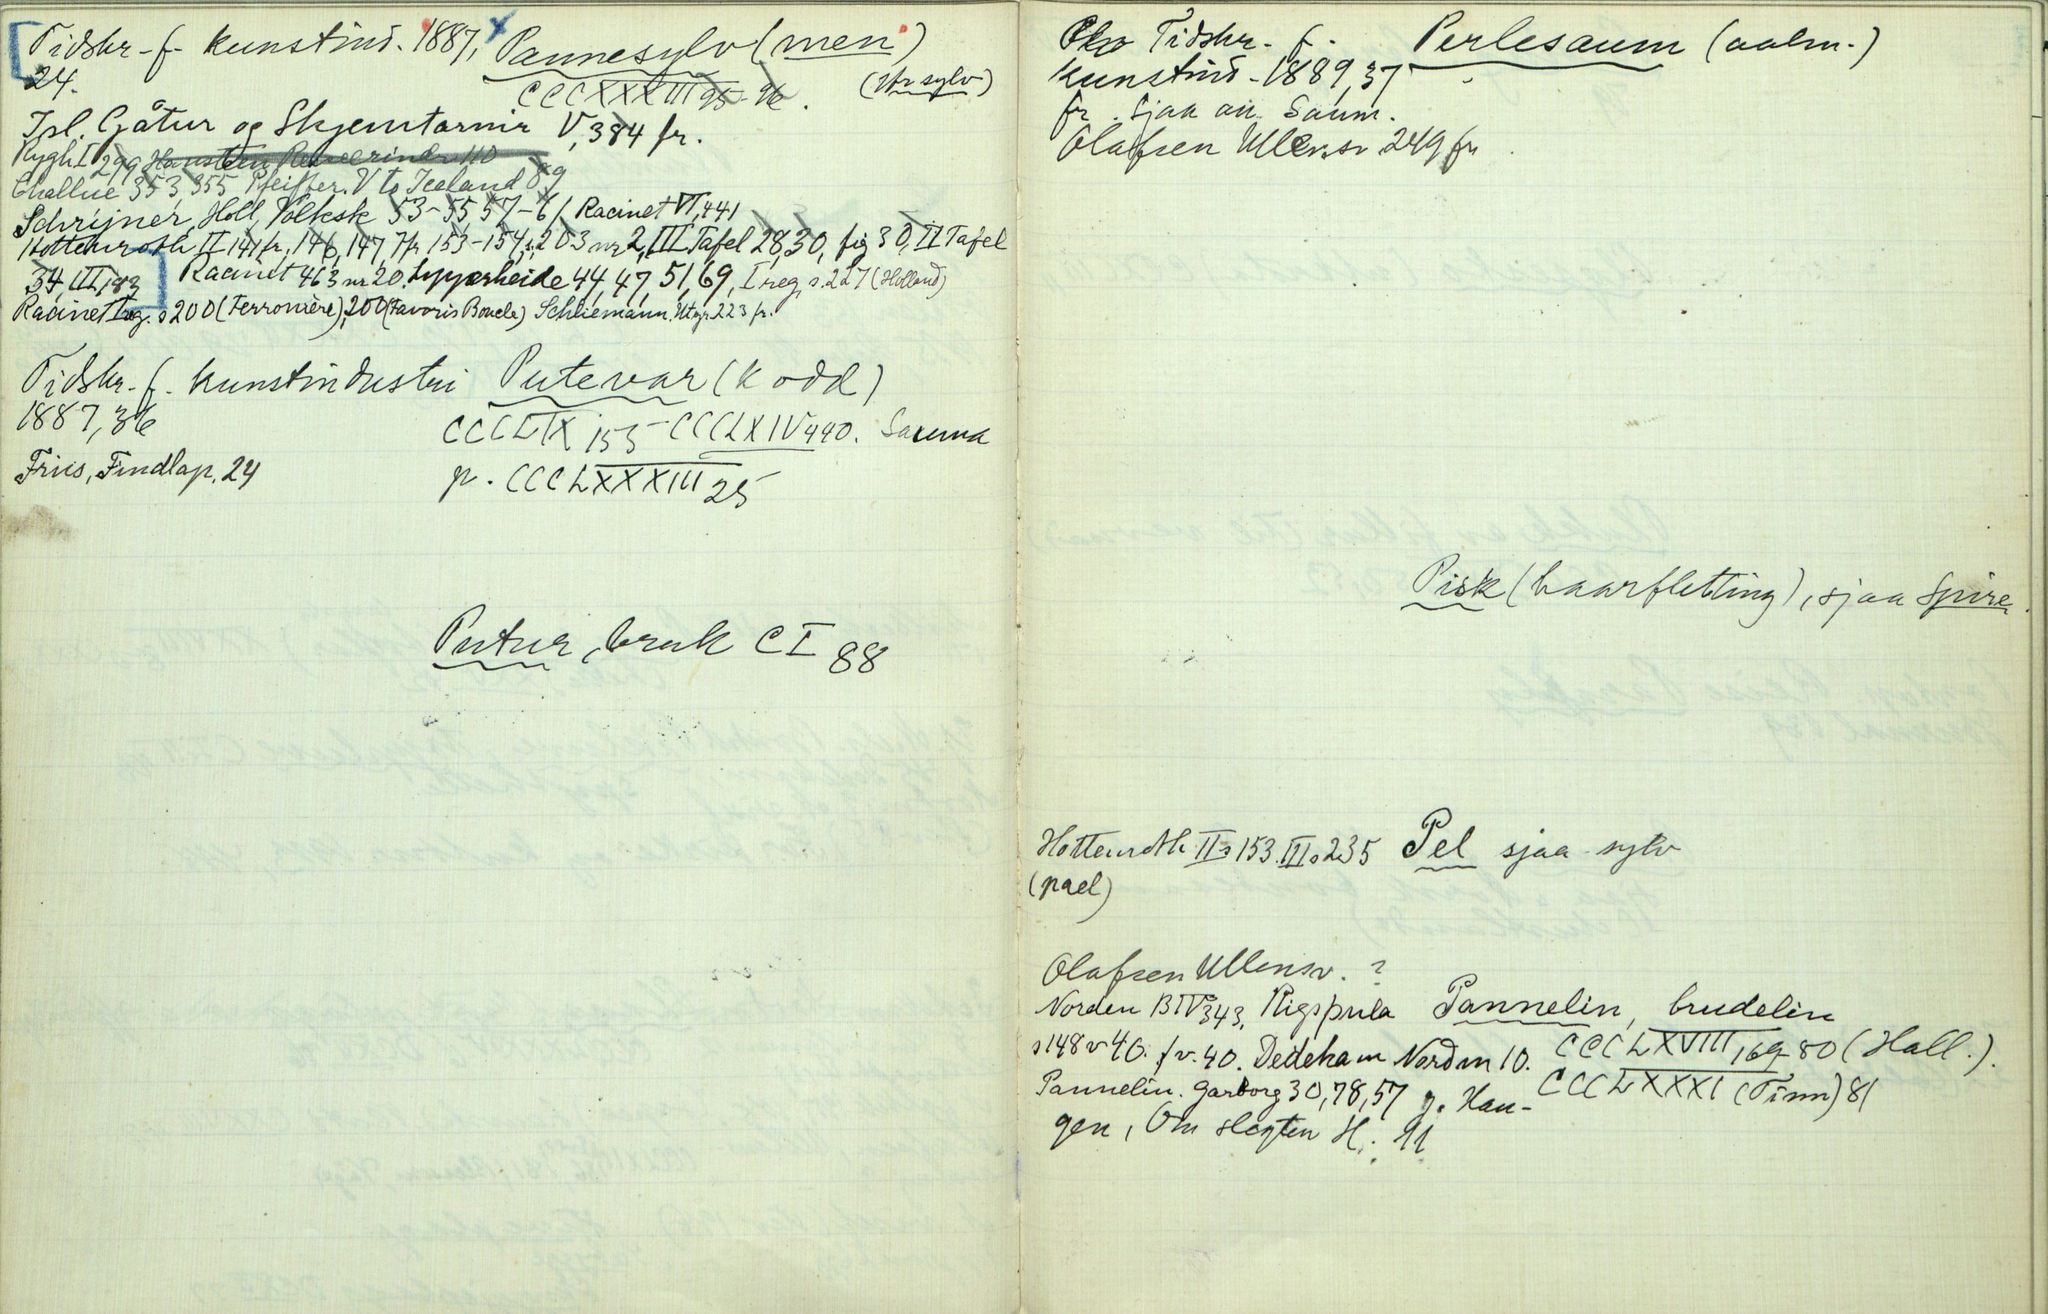 Tidskr. f. kunstind. 1887, Pannesylv (men)
24. CCCXXXIII 95-96. (Hr sylv)
Isl. Gåtur og Skjemtarnir V, 384 fr.
Rygh I 299 Hansteen Reiseerindr. 110
Challue 353, 355 Pfeiffer. V to Iceland 89
Schrijner, Holl. Volksk 53-55 57-61 Racinet VI, 441
Hottenroth II 141 fr, 146, 147, 7fr 153-154, s. 203 nr 2, III Tafel 28, 30, fig 30, II Tafel
34, III, 183 Racinet 463 nr 20. Lipperheide 44, 47, 51, 69, I reg. s. 227 (Holland)
Racinet I reg. s 200 (Ferronière), 200 (Favoris Boucle) Schliemann. 223 fr.
Tidskr. f. kunstindustri Putevar (k odd)
1887, 36
CCCLIX 155 - CCCLXIV 440. Sauma
Friis, Findlap. 24 p. CCCLXXXIII 25
Putur, bruk CI 88
Tidskr. f. Perlesaum (aalm.)
kunstind. 1889, 37
fr. Sjaa an. Saum.
Olafsen Ullensv. 249 fr.
Pisk (haarfletting), sjaa Spire.
Hottenroth II s 153. III s 235 Pel sjaa sylv
(pael)
Olafsen Ullensv. ?
Norden B IV 343, Rigsþula Pannelin, brudelin
s 148 v 40. f v. 40. Dedekam Nordm 10. CCCLXVIII, 69-80 (Hall.).
Pannelin. Garborg 30, 78, 57 g. Hau- CCCLXXXI (Tinn) 81
gen, Om slegten H. 41